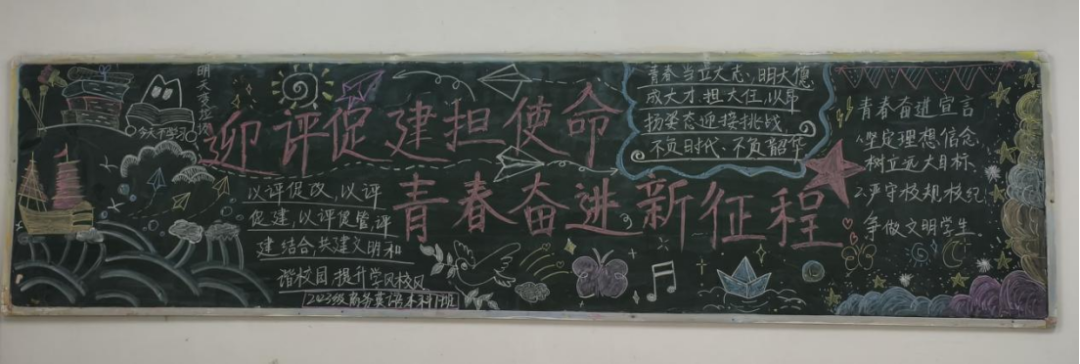 今天不学习
明天变垃圾
迎评促建担使命
青春奋进新征程
以评促改，以评
促建，以评促管，评
建结合，共建文明和
谐校园，提升学风校风
级商务英语本科1班
青春当立大志、明大德
成大才、担大任，以昂
扬姿态迎接挑战，
不负时代、不负韶华
青春奋进宣言
1.坚定理想信念，
树立远大目标
2.严守校规校纪
争做文明学生